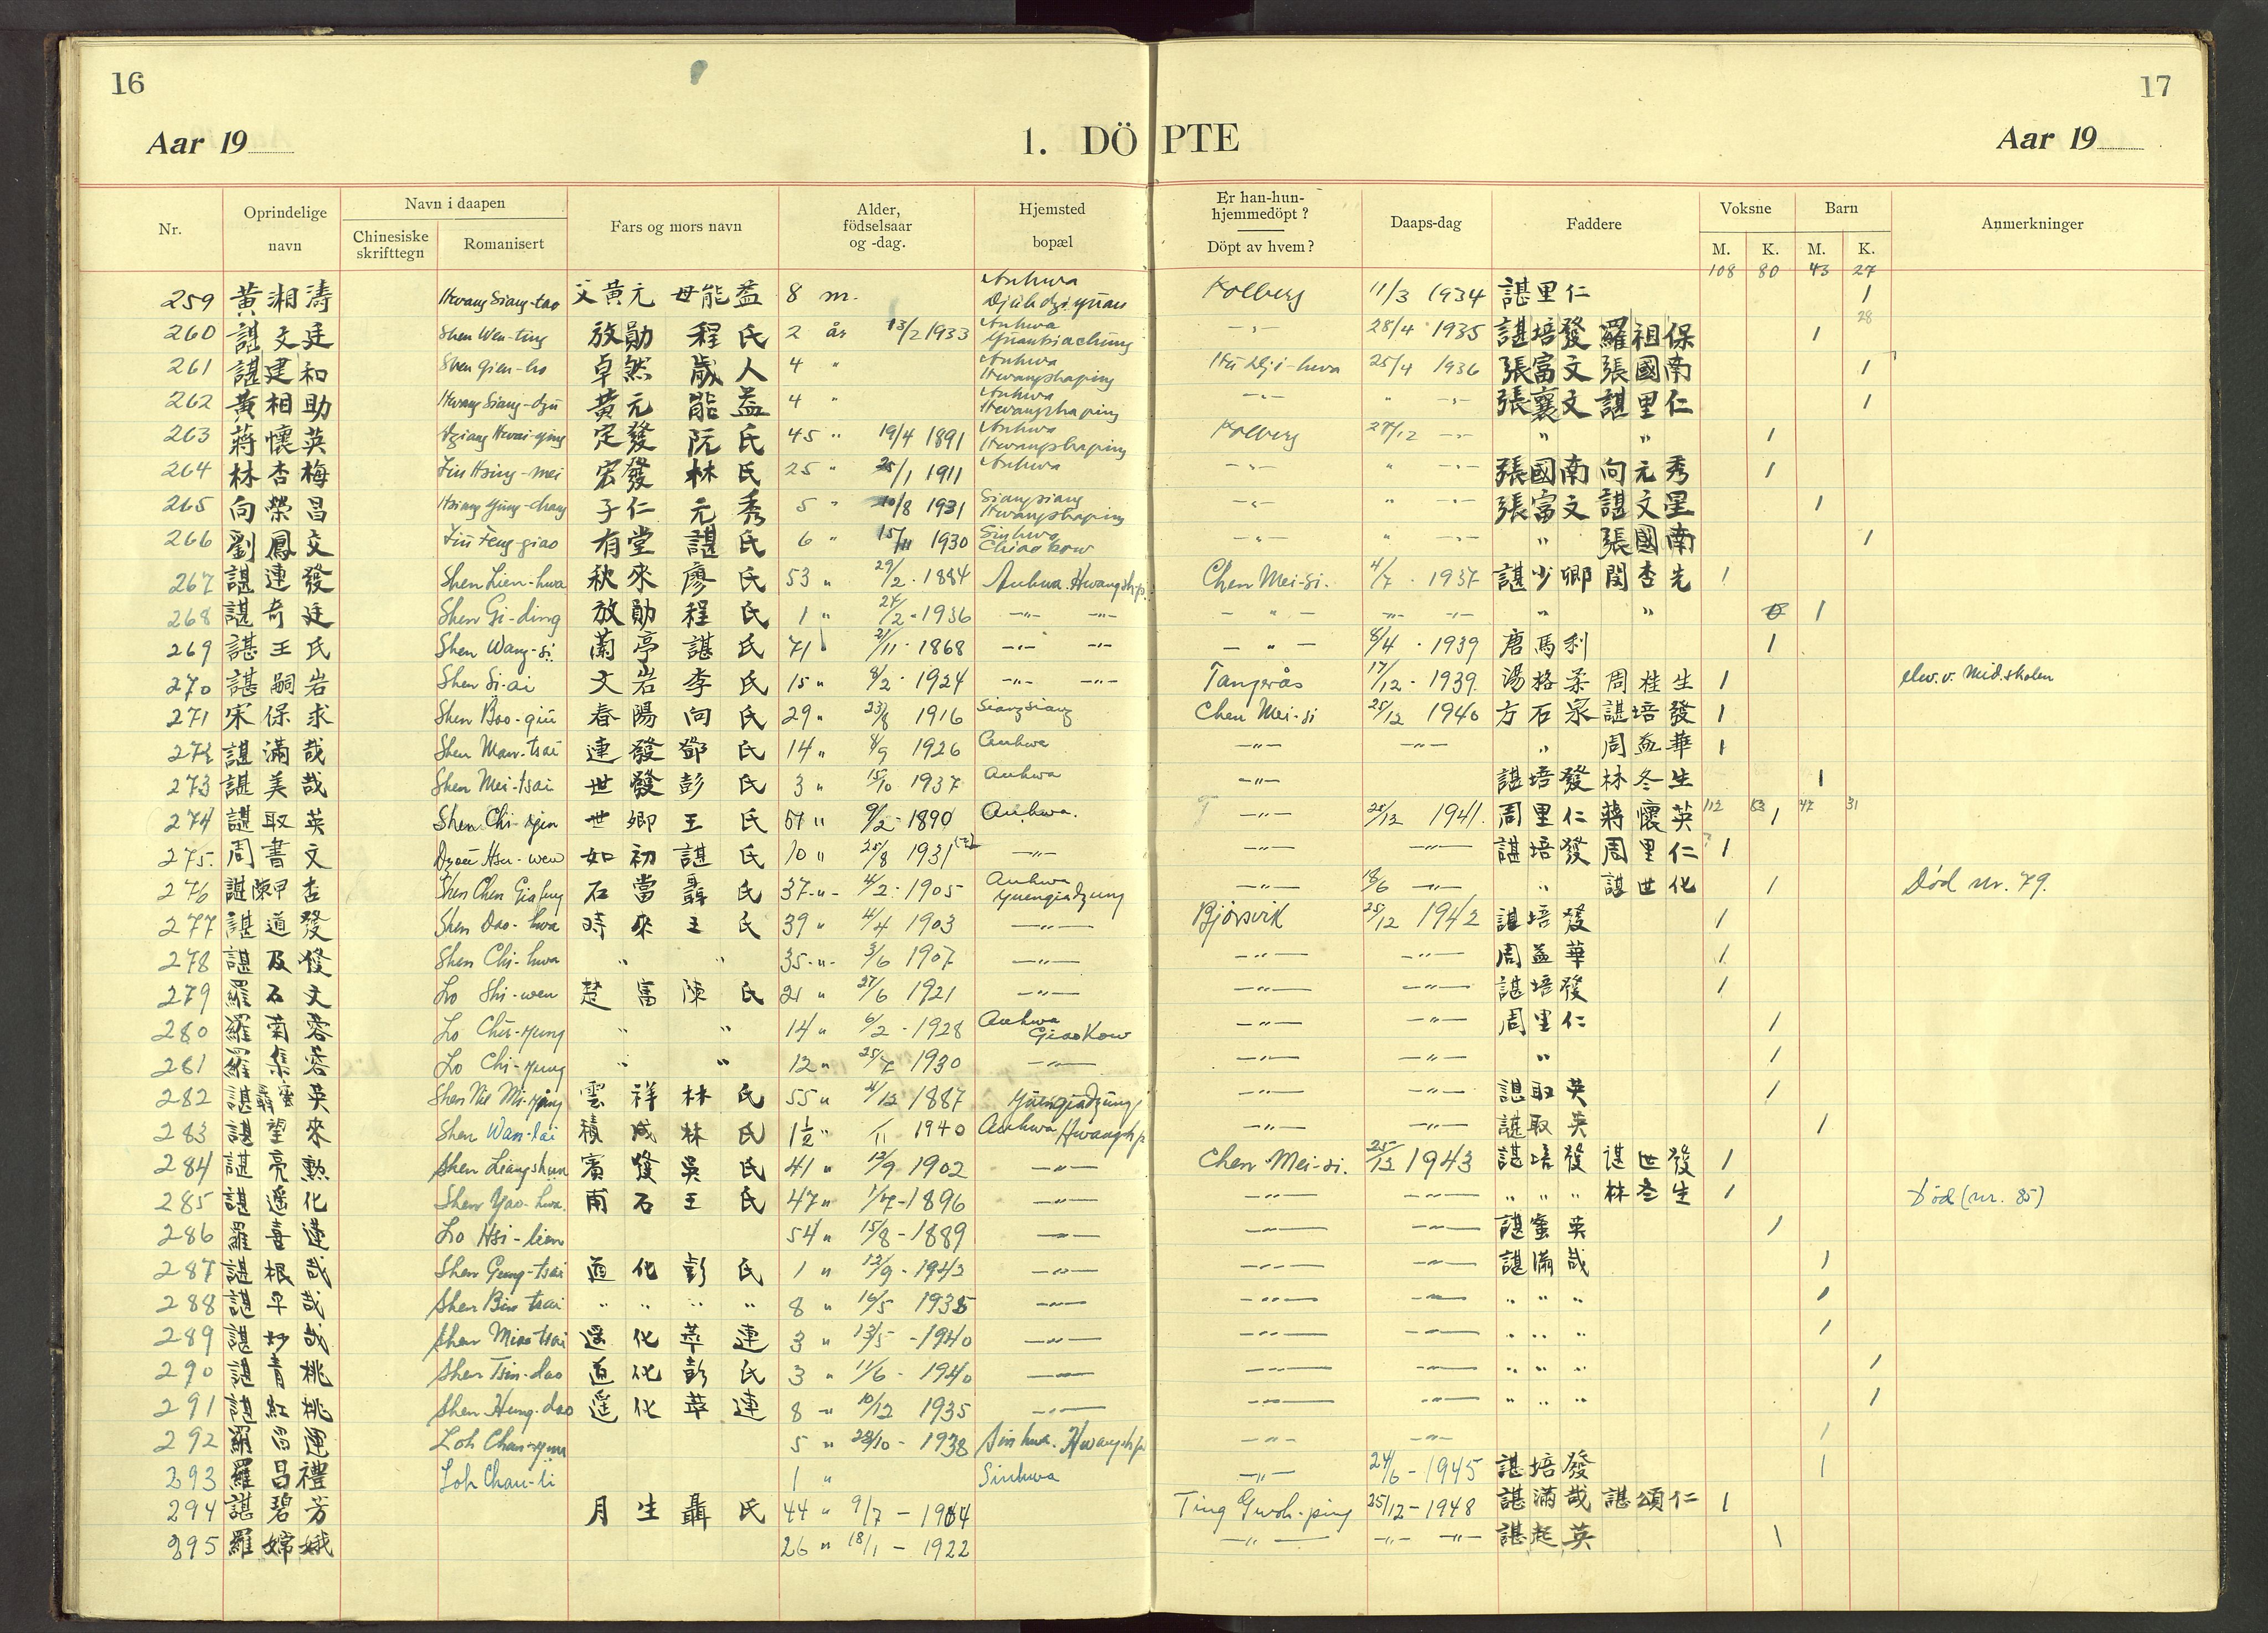 16
17
Aar 19
1. DÖPTE
Aar 19
Nr. Oprindelige navn Navn i daapen Chinesiske skrifttegn Romanisert Fars og mors navn Alder, födselsaar og -dag. Hjemsted bopæl Er han-hun-hjemmedöpt? Döpt av hvem? Daaps-dag Faddere Voksne M. K. Barn M. K. Anmerkninger
108 80 43 27
259 黃湘濤 Hwang Siang-tao 父黃元 母能益 8 m. Anhwa Kolberg 11/3 1934 諶里仁 1
28
260 諶文廷 Shen Wen-ting 放勛 程氏 2 år 13/2 1933 Anhwa -"- 28/4 1935 諶培發 羅祖保 1
261 諶建和 Shen Gien-ho 卓然 歲人 4 " Anhwa Hwangshaping 25/4 1936 張富文 張國南 1
262 黃相助 Hwang Siang-dzu 黃元 能益 4 " Anhwa Hwangshaping -"- " -"- 張襄文 諶里仁 1
263 蔣懷英 Dziang Hwai-ying 定發 阮氏 45 " 19/4 1891 Anhwa Hwangshaping Kolberg 27/12 -"- " " 1
264 林杏梅 Lin Hsing-mei 宏發 林氏 25 " 25/1 1911 Anhwa -"- " -"- 張國南 向元秀 1
265 向榮昌 Hsiang Yung-chang 子仁 元秀 5 " 20/8 1931 Siangsiang Hwangshaping -"- " -"- 張富文 諶文星 1
266 劉鳳交 Liu Feng-giao 有堂 諶氏 6 " 15/11 1930 Sinhwa Chiaokow -"- " -"- " 張國南 1
267 諶連發 Shen Lien-hwa 秋來 廖氏 53 " 29/2 · 1884 Anhwa. Hwangshp. Chen Mei-si. 4/7 · 1937 諶少卿 閔杏先 1
268 諶奇廷 Shen Gi-ding 放勛 程氏 1 " 24/2 - 1936 -"- -"- - " - -"- -"- " " 1
269 諶王氏 Shen Wang-si 蘭亭 諶氏 71 21/11 · 1868 -"- -"- - " - 8/4 · 1939 唐馬利 1
270 諶嗣岩 Shen Si-ai 文岩 李氏 15 " 9/2 · 1924 -"- -"- Tangerås 17/12 · 1939. 湯格柔 周桂生 1 elev. v. Mid.skolen
271 宋保求 Shen Bao-giu 春陽 向氏 29 " 23/8 1916 Siangsiang Chen Mei-si 25/12 1940 方石泉 諶培發 1
272 諶滿哉 Shen Man-tsai 連發 鄧氏 14 " 8/9 1926 Anhwa -"- -"- " 周益華 1
273 諶美哉 Shen Mei-tsai 世發 彭氏 3 " 15/10 1937 Anhwa -"- 諶培發 林冬生 1
112 83 47 31
274 諶取英 Shen Chi-yin 世卿 王氏 51 " 9/2 - 1890 Anhwa. -"- 25/12 1941. 周里仁 蔣懷英 1
275. 周書文 Dzou Hsu-wen 如初 諶氏 10 " 25/8 1931 -"- -"- -"- 諶培發 周里仁 1
276 諶陳甲杏 石當 聶氏 37 -"- 4/2 · 1905 Anhwa Yuengiadzung -"- 18/6 -"- " 諶世化 1 Död nr. 79.
277 諶道發 Shen Dao-hwa 時來 王氏 39 " 4/4 1903 -"- Bjørsvik 25/12 1942 諶培發 1
278 諶及發 Shen Chi-hwa " " 35 -"- 3/6 1907 -"- -"- -"- 周益華 1
279 羅石文 Lo Shi-wen 楚富 陳氏 21 " 27/6 1921 -"- -"- -"- 諶培發 1
280 羅菊容 Lo Chü-yung " " 14 " 6/2 · 1928 Anhwa Giaokow -"- -"- 周里仁 1
281 羅集容 Lo Chi-yung " " 12 " 25/7 1930 -"- -"- -"- " 1
282 諶聶蜜英 Shen Nie Mi-ying 雲祥 林氏 55 " 4/12 1887 Yuengiadzung -"- -"- 諶取英 1
283 諶望來 Shen Wan-lai 積成 林氏 1½ " /11 1940 Anhwa Hwangshp -"- -"- 諶取英 1
284 諶亮勲 Shen Liang-shun 賓發 吳氏 41 " 12/9 1902 -"- Chen Mei-si. 25/12 1943 諶培發 諶世發 1
285 諶遥化 Shen Yao-hwa. 甫石 王氏 47 " 1/7 - 1896 -"- -"- -"- " " " 林冬生 1 Död (nr. 85)
286 羅喜蓮 Lo Hsi-lien 54 " 15/8 - 1889 -"- -"- -"- 諶蜜英 1
287 諶根哉 Shen Geng-tsai 道化 彭氏 1 " 12/9 - 1942 -"- -"- -"- 諶滿哉 1
288 諶平哉 Shen Bin tsai " " " " 8 " 16/5 1935 -"- -"- -"- " " " 1
289 諶妙哉 Shen Miao tsai 遥化 萃連 3 " 13/5 - 1940 -"- -"- -"- " " " 1
290 諶青桃 Shen Tsin-dao 道化 彭氏 3 " 11/6 - 1940 -"- -"- -"- " " " 1
291 諶紅桃 Shen Hung-dao 遥化 萃連 8 -"- 10/12 1935 -"- -"- -"- " " " 1
292 羅昌運 Loh Chan-yun 5 " 28/10 - 1938 Sinhwa. Hwangshp -"- -"- 1
293 羅昌禮 Loh Chan-li 1 " Sinhwa -"- 24/6 - 1945 諶培發 1
294 諶碧芳 月生 聶氏 44 " 9/7 - 1904 Ting Gwoh-ping 25/12 - 1948 諶滿哉 諶頌仁 1
295 羅嫦娥 26 " 18/1 - 1922 -"- -"- -"- 諶起英 1